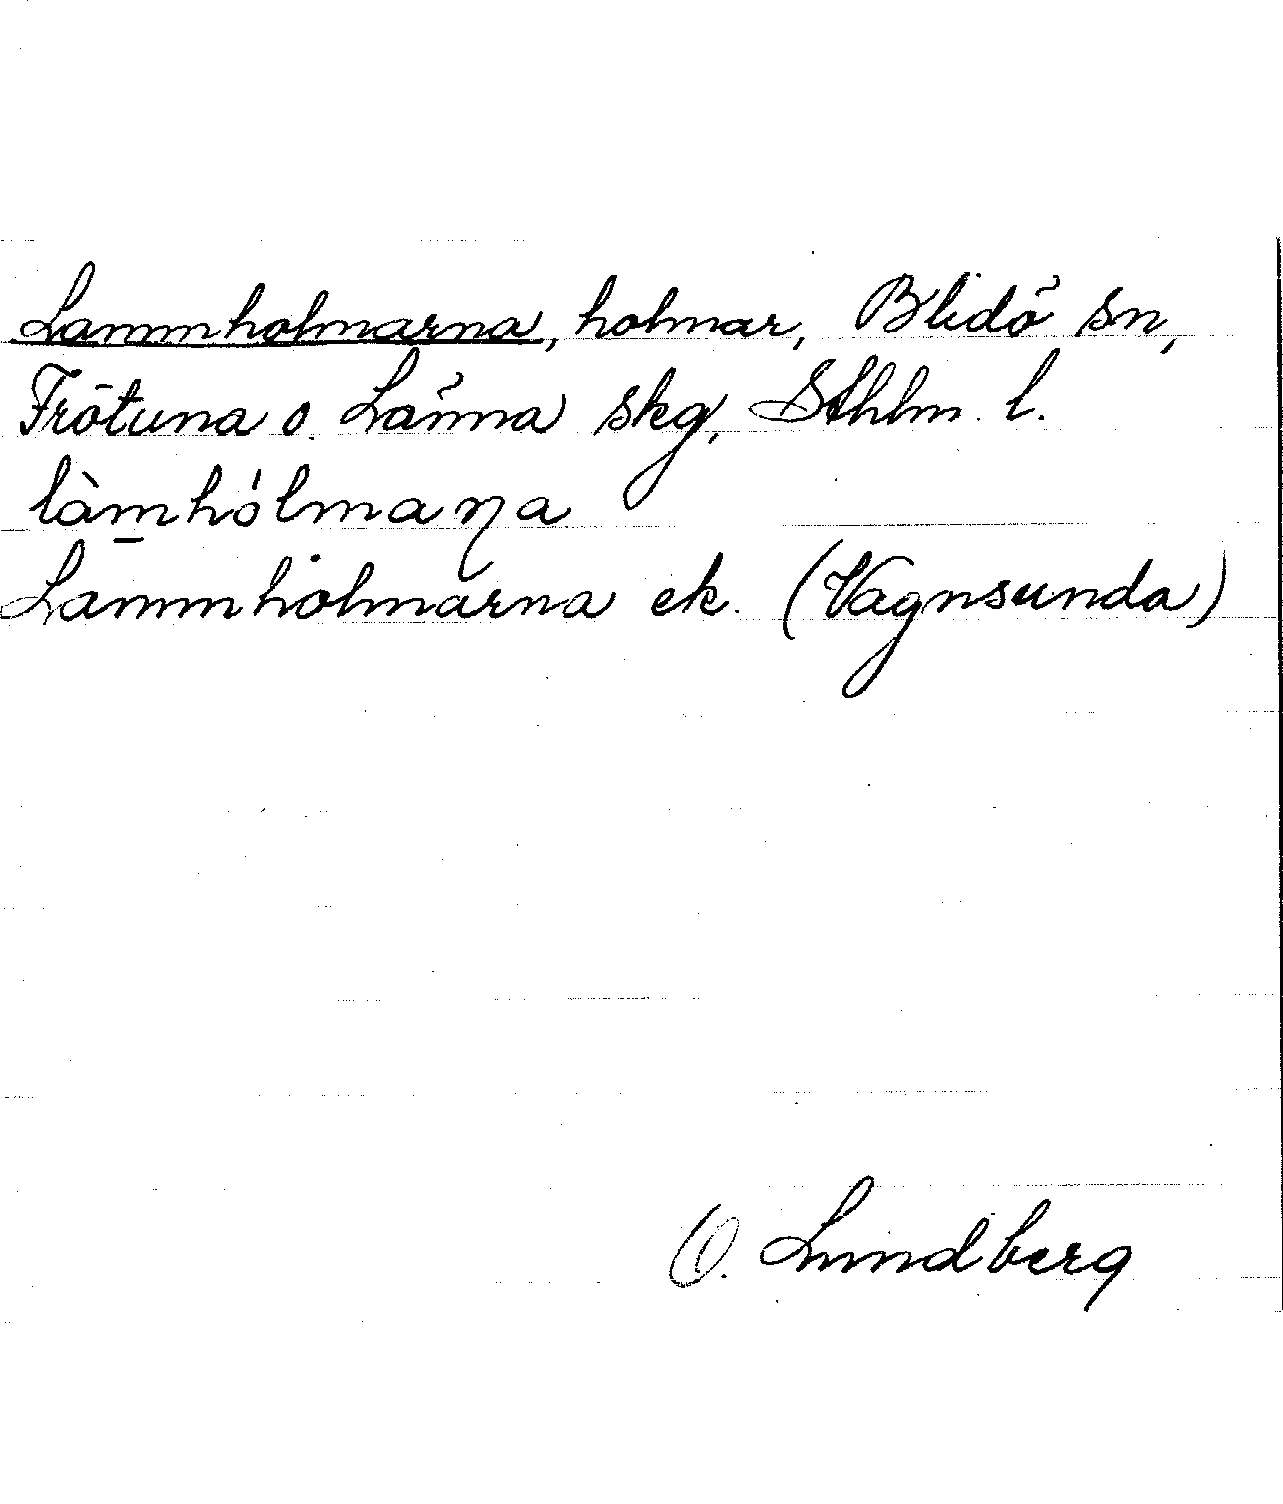 Lammholmarna, holmar, Blidö sn,
Frötuna o. Länna skg, Sthlm. l.
làm̲hólmaɳa
Lammholmarna ek. (Vagnsunda)
O. Lundberg